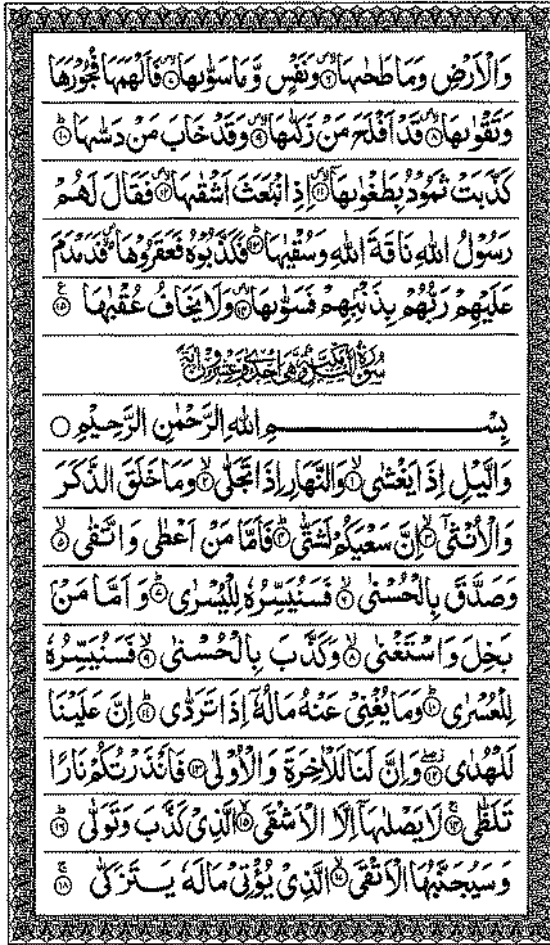 وَالْاَرْضِ وَمَا طَحٰىهَا ۝۶ وَنَفْسٍ وَّمَا سَوّٰىهَا ۝۷ فَاَلْهَمَهَا فُجُوْرَهَا
وَتَقْوٰىهَا ۝۸ قَدْ اَفْلَحَ مَنْ زَكّٰىهَا ۝۹ وَقَدْ خَابَ مَنْ دَسّٰىهَا ۝۱۰
كَذَّبَتْ ثَمُوْدُ بِطَغْوٰىهَا ۝۱۱ اِذِ انْۢبَعَثَ اَشْقٰىهَا ۝۱۲ فَقَالَ لَهُمْ
رَسُوْلُ اللّٰهِ نَاقَةَ اللّٰهِ وَسُقْيٰهَا ۝۱۳ فَكَذَّبُوْهُ فَعَقَرُوْهَا فَدَمْدَمَ
عَلَيْهِمْ رَبُّهُمْ بِذَنْۢبِهِمْ فَسَوّٰىهَا ۝۱۴ وَلَا يَخَافُ عُقْبٰهَا ۝۱۵
سُوْرَةُ الَّيْلِ مَكِّيَّةٌ وَّهِيَ اِحْدٰى وَعِشْرُوْنَ اٰيَةً
بِسْمِ اللّٰهِ الرَّحْمٰنِ الرَّحِيْمِ
وَالَّيْلِ اِذَا يَغْشٰى ۝۱ وَالنَّهَارِ اِذَا تَجَلّٰى ۝۲ وَمَا خَلَقَ الذَّكَرَ
وَالْاُنْثٰٓى ۝۳ اِنَّ سَعْيَكُمْ لَشَتّٰى ۝۴ فَاَمَّا مَنْ اَعْطٰى وَاتَّقٰى ۝۵
وَصَدَّقَ بِالْحُسْنٰى ۝۶ فَسَنُيَسِّرُهٗ لِلْيُسْرٰى ۝۷ وَاَمَّا مَنْۢ
بَخِلَ وَاسْتَغْنٰى ۝۸ وَكَذَّبَ بِالْحُسْنٰى ۝۹ فَسَنُيَسِّرُهٗ
لِلْعُسْرٰى ۝۱۰ وَمَا يُغْنِيْ عَنْهُ مَالُهٗٓ اِذَا تَرَدّٰى ۝۱۱ اِنَّ عَلَيْنَا
لَلْهُدٰى ۝۱۲ وَاِنَّ لَنَا لَلْاٰخِرَةَ وَالْاُوْلٰى ۝۱۳ فَاَنْذَرْتُكُمْ نَارًا
تَلَظّٰى ۝۱۴ لَا يَصْلٰىهَآ اِلَّا الْاَشْقَى ۝۱۵ الَّذِيْ كَذَّبَ وَتَوَلّٰى ۝۱۶
وَسَيُجَنَّبُهَا الْاَتْقَى ۝۱۷ الَّذِيْ يُؤْتِيْ مَالَهٗ يَتَزَكّٰى ۝۱۸